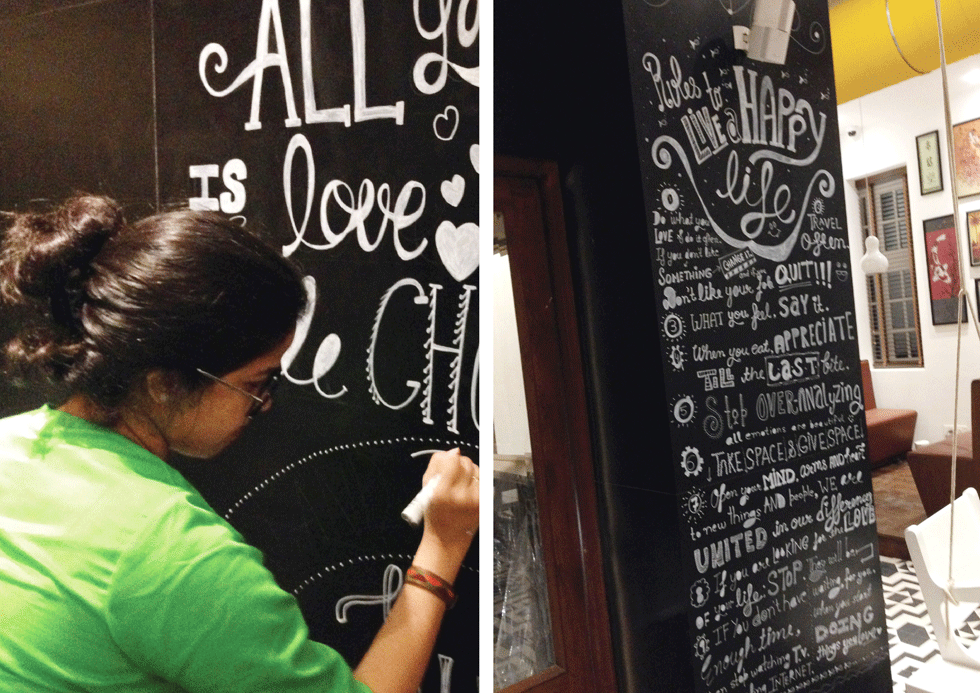 ALL
IS
love
CH
Rules to
LIVE a HAPPY
life
Do what you
LOVE & do it often.
If you don't like
SOMETHING CHANGE IT.
and if you
Don't like your job QUIT!!!
TRAVEL
often.
3 WHAT you feel, SAY it.
4 When you eat, APPRECIATE
TILL the LAST bite.
5 Stop OVERANALYZING
all emotions are beautiful.
6 TAKE SPACE & GIVE SPACE!
7 Open your MIND, arms and heart
to new things AND people, WE are
UNITED in our differences
8 If you are LOOKING for the LOVE
OF your life, STOP. They will be
waiting for you
9 IF YOU DON'T have
when you start
Enough time, DOING
stop watching T.V. things you love
INTERNET.